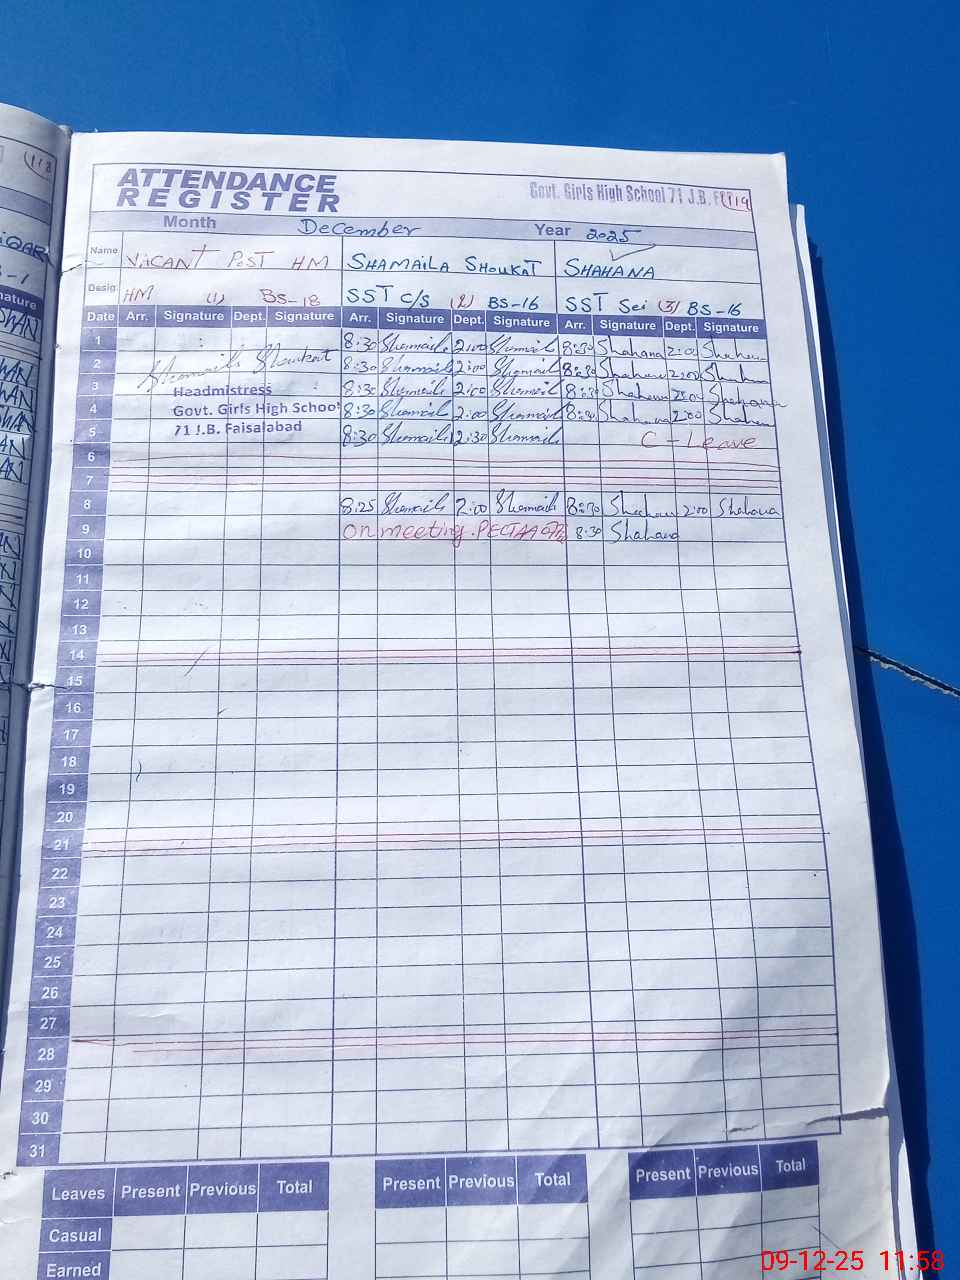 118
ATTENDANCE
REGISTER
Govt. Girls High School 71 J.B. 119
Month December Year 2025
Name VACANT POST HM SHAMAILA SHOUKAT SHAHANA
Desig. HM (1) BS-18 SST C/S (2) BS-16 SST Sci (3) BS-16
Date Arr. Signature Dept. Signature Arr. Signature Dept. Signature Arr. Signature Dept. Signature
1 8:30 Shamaila 2:00 Shamaila 8:30 Shahana 2:00 Shahana
2 8:30 Shamaila 2:00 Shamaila 8:30 Shahana 2:00 Shahana
Shamaila Shoukat
3 8:30 Shamaila 2:00 Shamaila 8:30 Shahana 2:00 Shahana
Headmistress
4 8:30 Shamaila 2:00 Shamaila 8:30 Shahana 2:00 Shahana
Govt. Girls High School
71 J.B. Faisalabad
5 8:30 Shamaila 12:30 Shamaila C - Leave
6
7
8 8:25 Shamaila 2:00 Shamaila 8:30 Shahana 2:00 Shahana
9 On meeting. PECTAA 8:30 Shahana
10
11
12
13
14
15
16
17
18
19
20
21
22
23
24
25
26
27
28
29
30
31
Leaves Present Previous Total Present Previous Total Present Previous Total
Casual
Earned
09-12-25 11:58